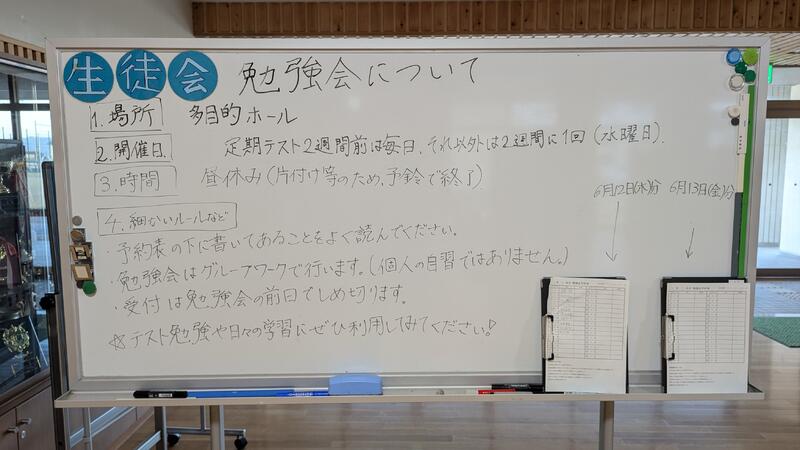 生徒会 勉強会について
1.場所 多目的ホール
2.開催日 定期テスト2週間前は毎日、それ以外は2週間に1回(水曜日).
3.時間 昼休み(片付け等のため、予鈴で終了)
4.細かいルールなど
・予約表の下に書いてあることをよく読んでください。
・勉強会はグループワークで行います。(個人の自習ではありません。)
・受付は勉強会の前日でしめ切ります。
☆テスト勉強や日々の学習にぜひ利用してみてください!
6月12日(木)分 6月13日(金)分